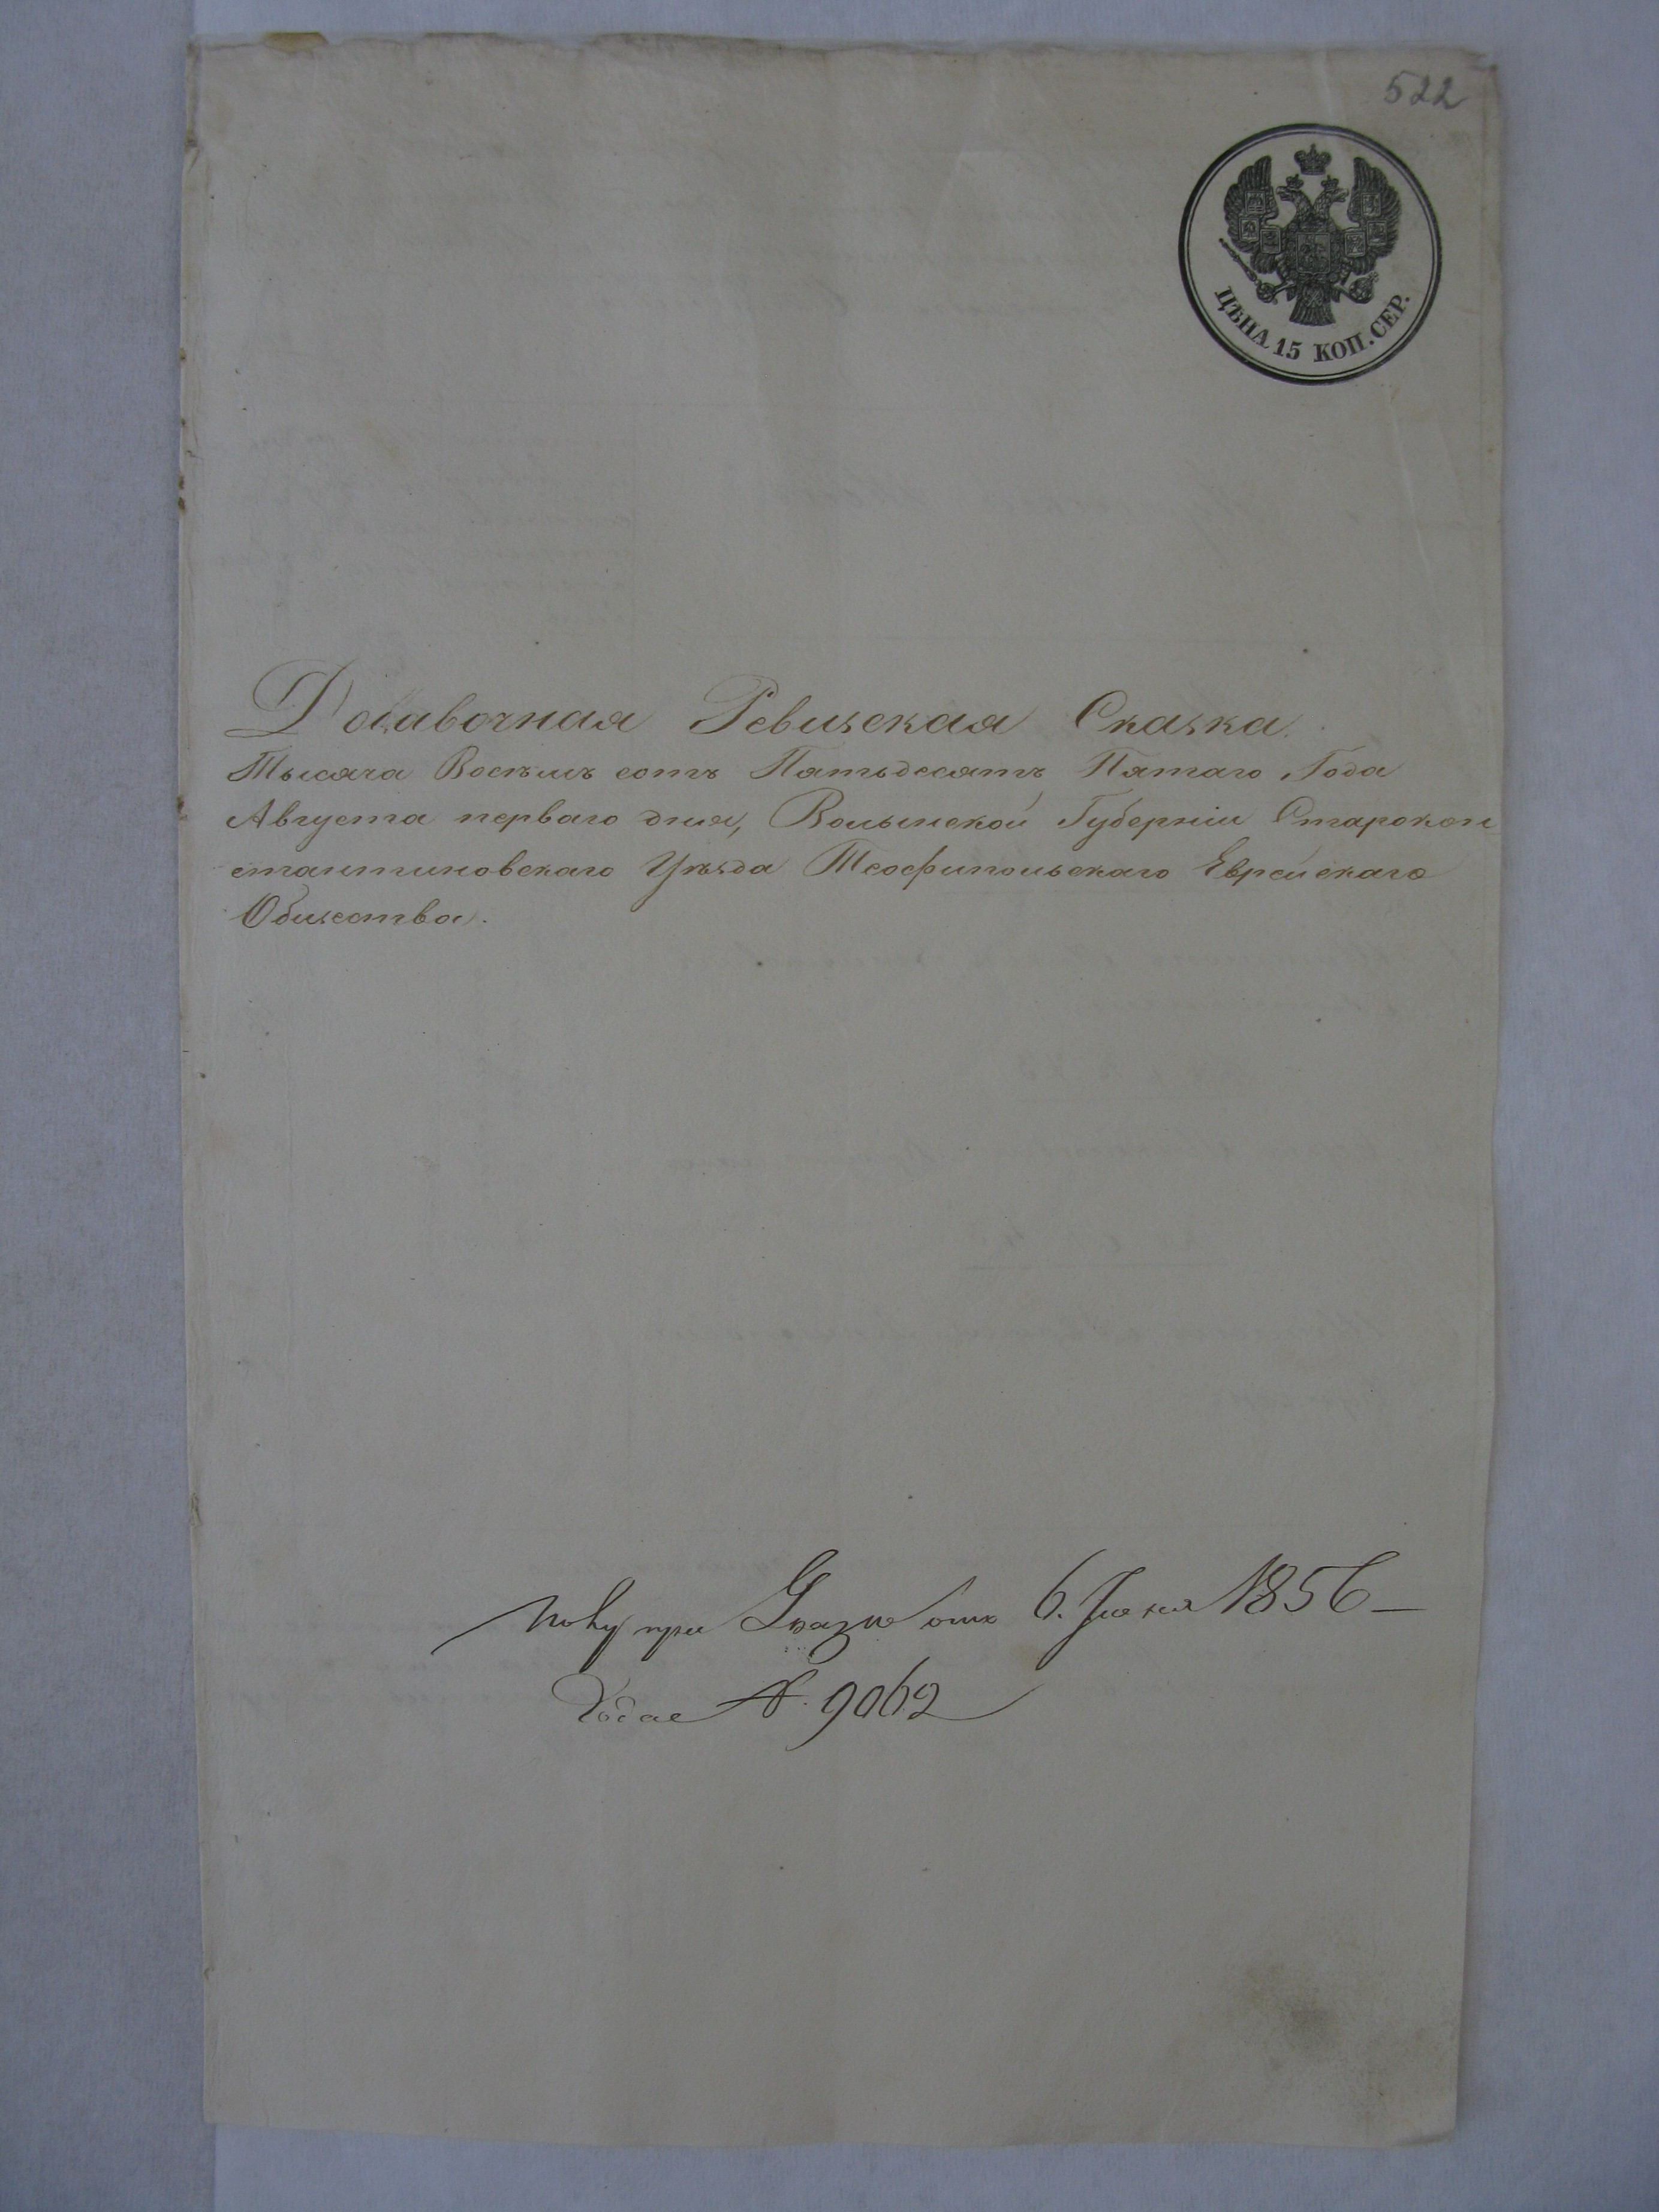 522
ЦѢНА 15 КОП. СЕР.
Добавочная Ревизская Сказка.
Тысяча Восемь сотъ Пятьдесятъ Пятаго Года
Августа перваго дня, Волынской Губерніи Старокон
стантиновскаго Уѣзда Теофипольскаго Еврейскаго
Общества.
при Указѣ отъ 6. Іюня 1856 –
Года № 9062